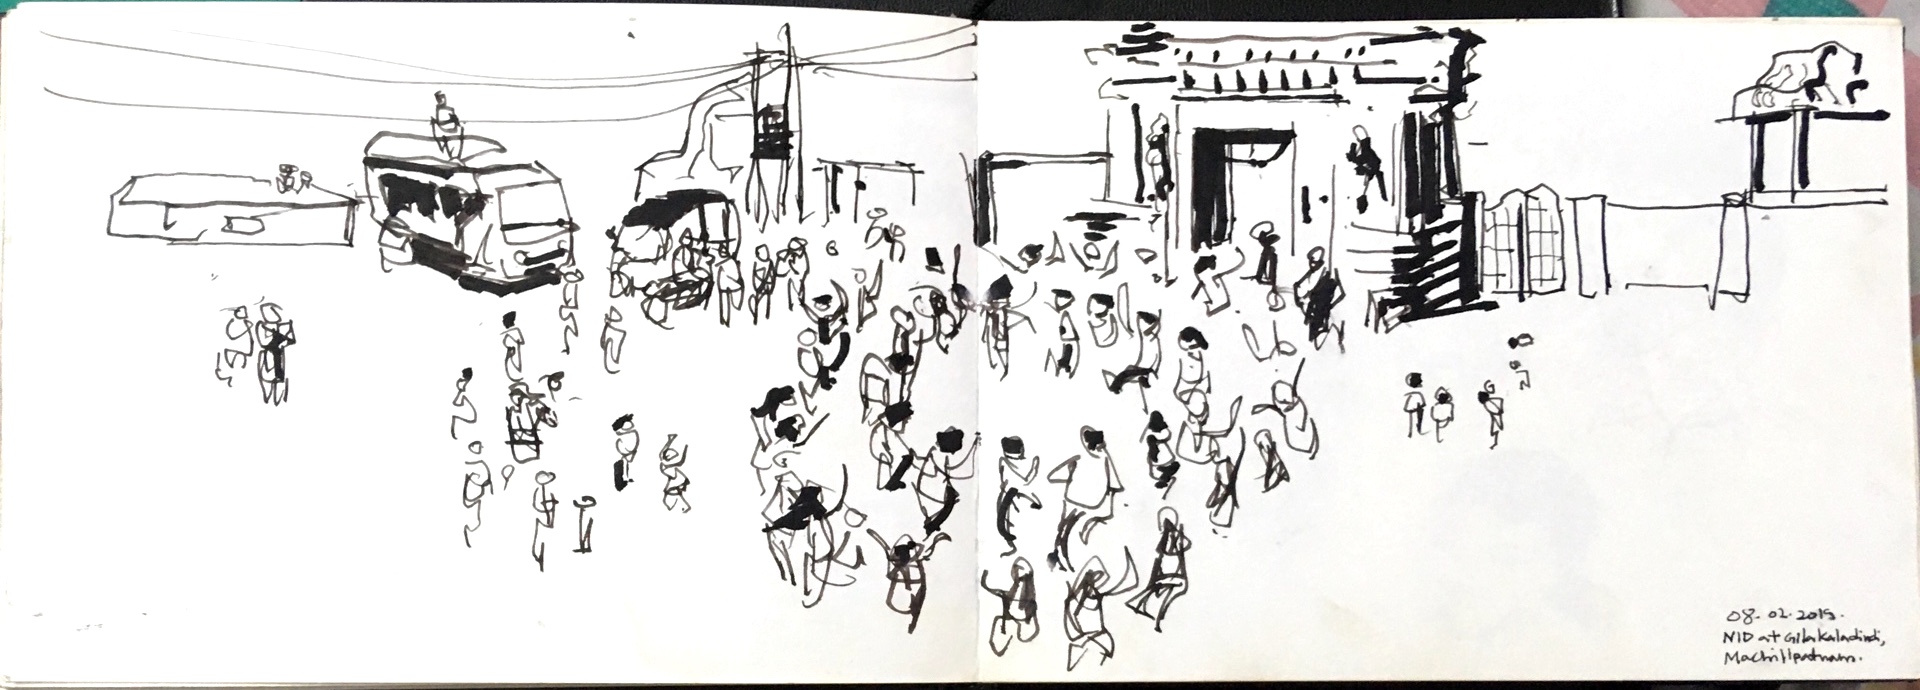 08.02.2015.
NID at Gilakaladindi,
Machilipatnam.